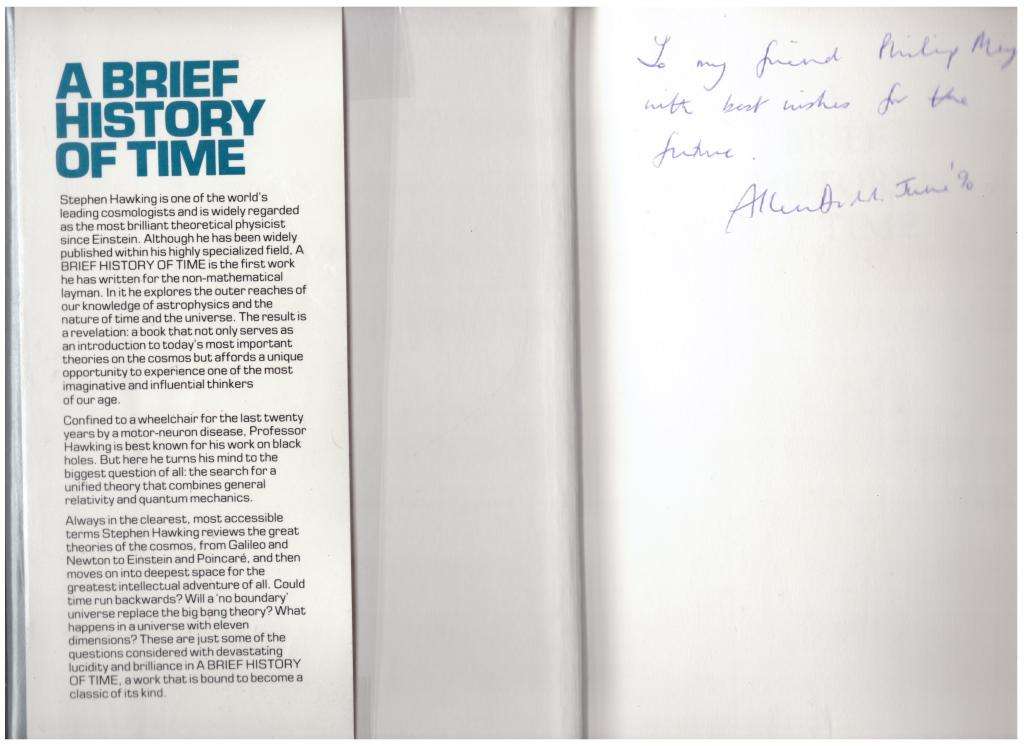 A BRIEF
HISTORY
OF TIME
Stephen Hawking is one of the world's
leading cosmologists and is widely regarded
as the most brilliant theoretical physicist
since Einstein. Although he has been widely
published within his highly specialized field, A
BRIEF HISTORY OF TIME is the first work
he has written for the non-mathematical
layman. In it he explores the outer reaches of
our knowledge of astrophysics and the
nature of time and the universe. The result is
a revelation: a book that not only serves as
an introduction to today's most important
theories on the cosmos but affords a unique
opportunity to experience one of the most
imaginative and influential thinkers
of our age.
Confined to a wheelchair for the last twenty
years by a motor-neuron disease, Professor
Hawking is best known for his work on black
holes. But here he turns his mind to the
biggest question of all: the search for a
unified theory that combines general
relativity and quantum mechanics.
Always in the clearest, most accessible
terms Stephen Hawking reviews the great
theories of the cosmos, from Galileo and
Newton to Einstein and Poincaré, and then
moves on into deepest space for the
greatest intellectual adventure of all. Could
time run backwards? Will a 'no boundary'
universe replace the big bang theory? What
happens in a universe with eleven
dimensions? These are just some of the
questions considered with devastating
lucidity and brilliance in A BRIEF HISTORY
OF TIME, a work that is bound to become a
classic of its kind.
To my friend Philip
with best wishes for the
future.
Allen June '90